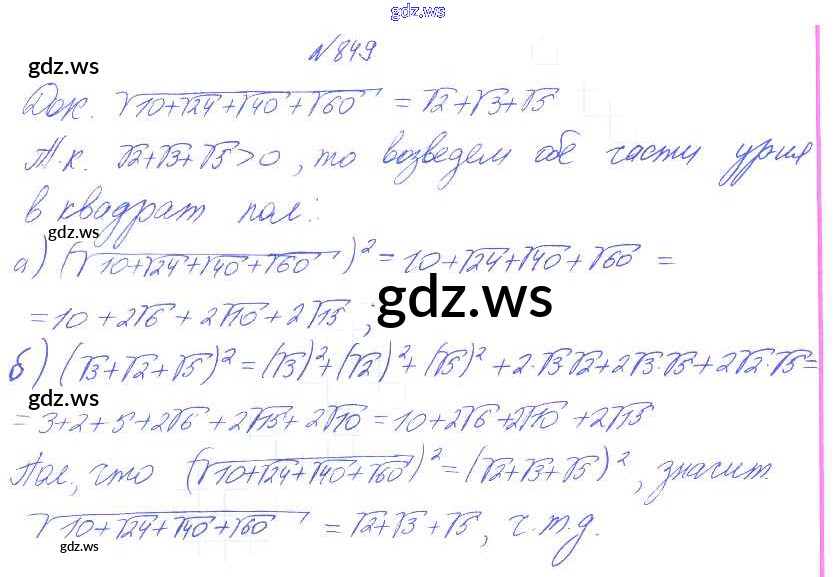 gdz.ws
N 849
gdz.ws
Док. √(10+√24+√40+√60) = √2+√3+√5
Т.к. √2+√3+√5>0, то возведем обе части ур-ия
в квадрат пол.:
gdz.ws
а) (√(10+√24+√40+√60))² = 10+√24+√40+√60 =
= 10+2√6+2√10+2√15;
gdz.ws
б) (√3+√2+√5)² = (√3)²+(√2)²+(√5)²+2·√3·√2+2√3·√5+2√2·√5=
gdz.ws
= 3+2+5+2√6+2√15+2√10 = 10+2√6+2√10+2√15
Пол., что (√(10+√24+√40+√60))² = (√2+√3+√5)², значит
√(10+√24+√40+√60) = √2+√3+√5, ч.т.д.
gdz.ws